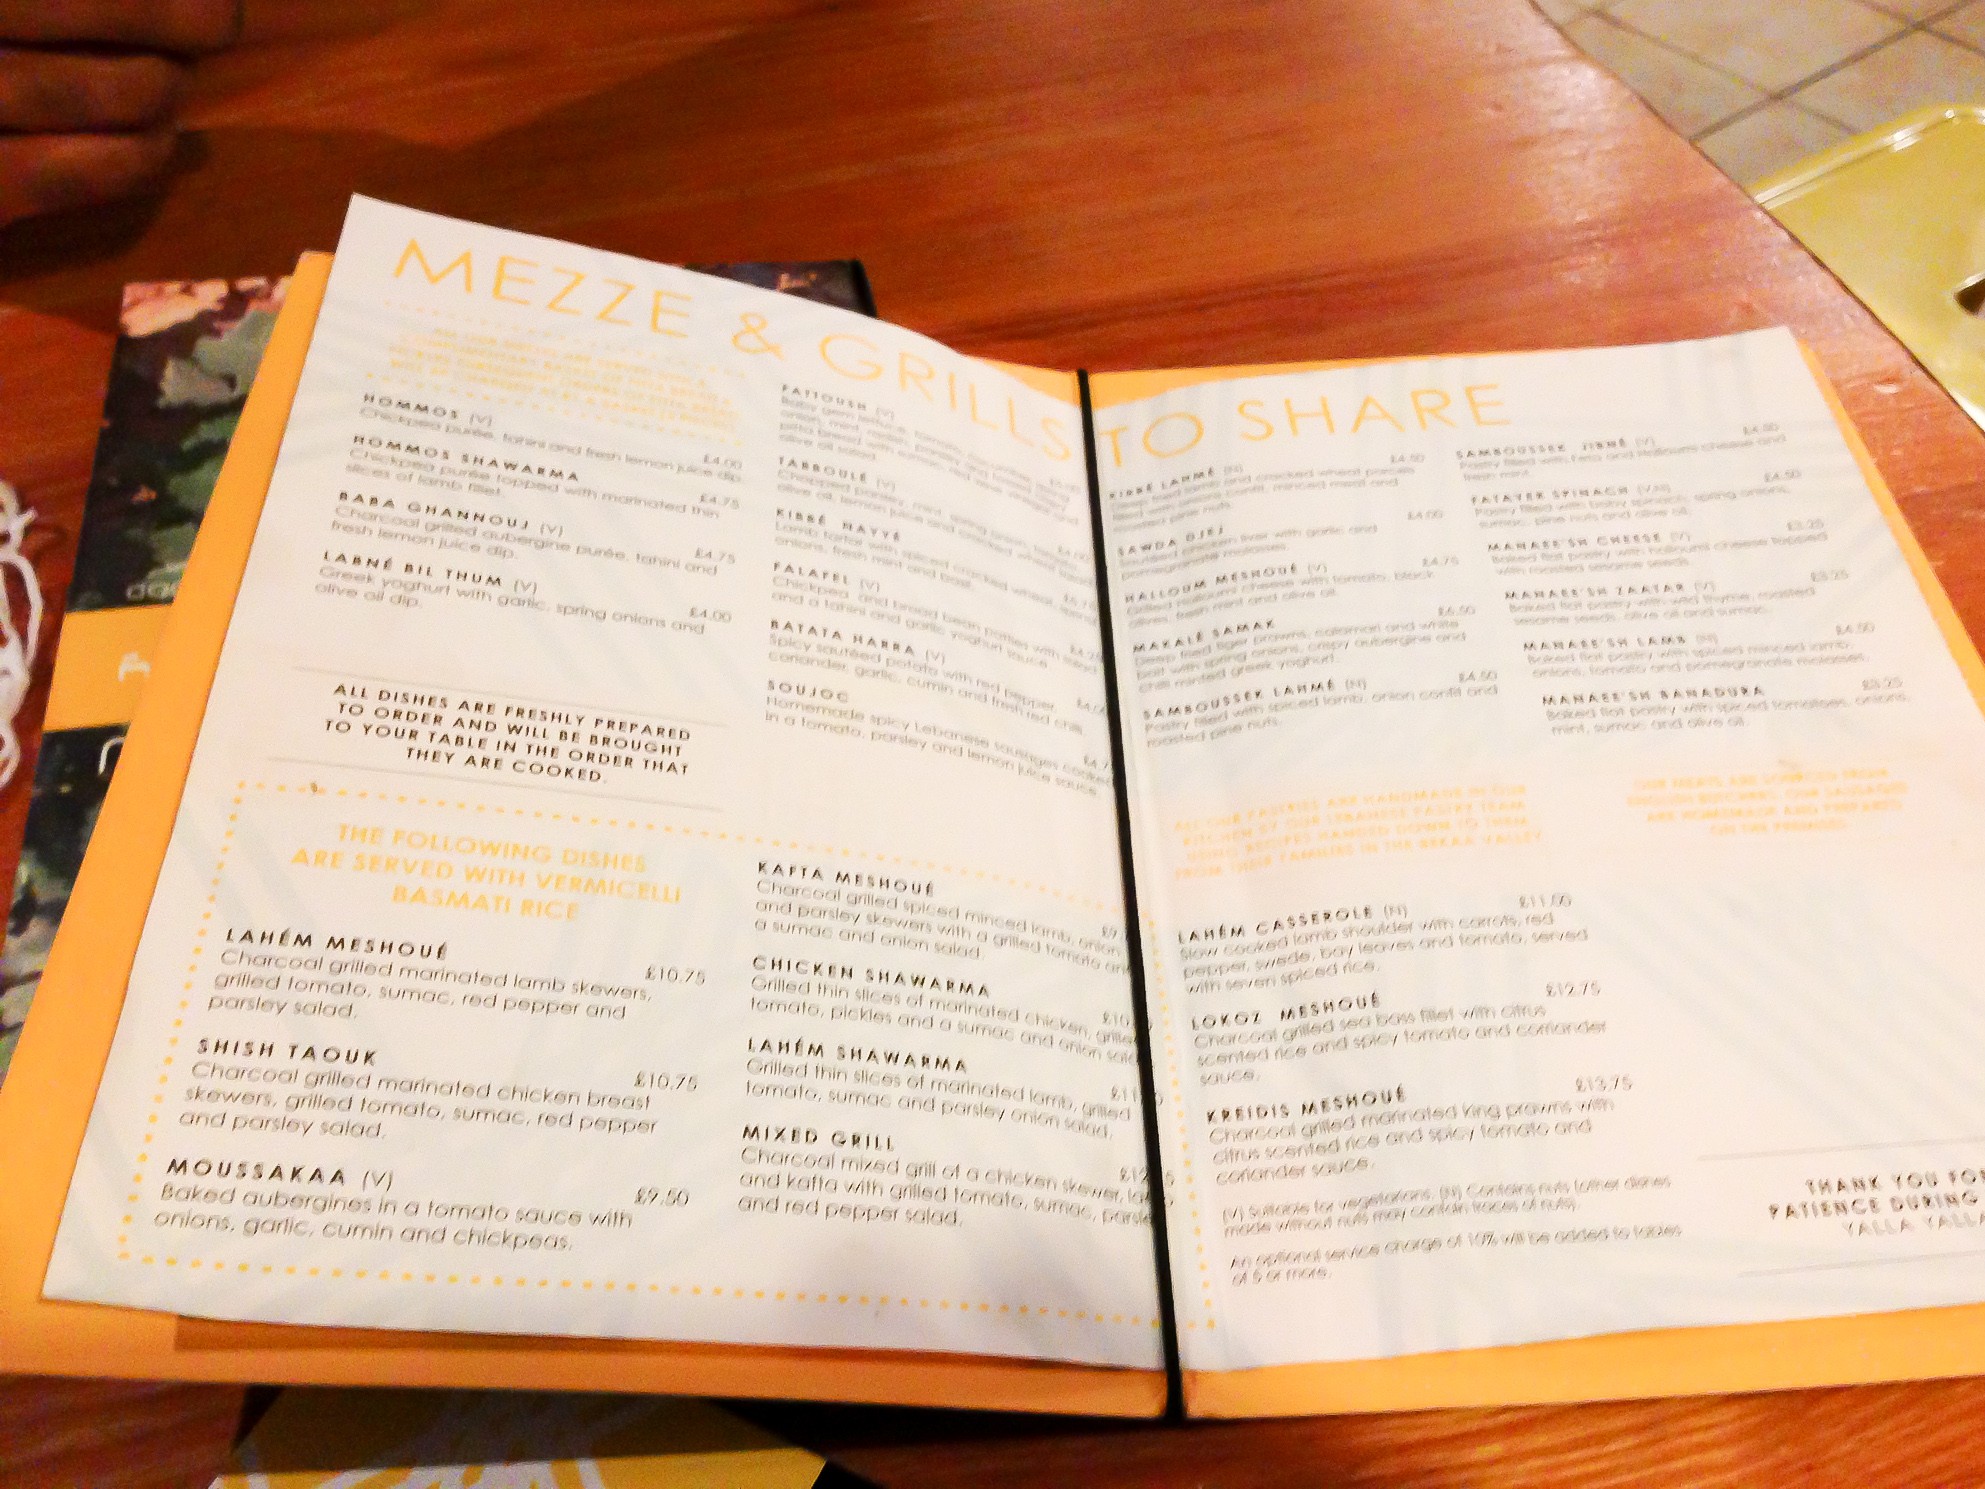 MEZZE & GRILLS TO SHARE
HOMMOS (V)
£4.00
Chickpea purée, tahini and fresh lemon juice dip.
HOMMOS SHAWARMA
£4.75
Chickpea purée topped with marinated thin
slices of lamb fillet.
BABA GHANNOUJ (V)
£4.75
Charcoal grilled aubergine purée, tahini and
fresh lemon juice dip.
LABNÉ BIL THUM (V)
£4.00
Greek yoghurt with garlic, spring onions and
olive oil dip.
ALL DISHES ARE FRESHLY PREPARED
TO ORDER AND WILL BE BROUGHT
TO YOUR TABLE IN THE ORDER THAT
THEY ARE COOKED.
FATTOUSH (V)
olive oil salad.
TABBOULÉ (V)
£4.00
Chopped parsley, mint, spring onion, tomato,
olive oil, lemon juice and cracked wheat salad.
KIBBÉ NAYYÉ
Lamb tartar with spiced cracked wheat, spring
onions, fresh mint and basil.
FALAFEL (V)
Chickpea and broad bean patties with salad
and a tahini and garlic yoghurt sauce.
BATATA HARRA (V)
Spicy sautéed potato with red pepper,
coriander, garlic, cumin and fresh red chilli.
SOUJOC
Homemade spicy Lebanese sausages cooked
in a tomato, parsley and lemon juice sauce.
THE FOLLOWING DISHES
ARE SERVED WITH VERMICELLI
BASMATI RICE
LAHÉM MESHOUÉ
£10.75
Charcoal grilled marinated lamb skewers,
grilled tomato, sumac, red pepper and
parsley salad.
SHISH TAOUK
£10.75
Charcoal grilled marinated chicken breast
skewers, grilled tomato, sumac, red pepper
and parsley salad.
MOUSSAKAA (V)
£9.50
Baked aubergines in a tomato sauce with
onions, garlic, cumin and chickpeas.
KAFTA MESHOUÉ
£9.
Charcoal grilled spiced minced lamb, onion
and parsley skewers with a grilled tomato and
a sumac and onion salad.
CHICKEN SHAWARMA
£10.
Grilled thin slices of marinated chicken, grilled
tomato, pickles and a sumac and onion salad.
LAHÉM SHAWARMA
£11.
Grilled thin slices of marinated lamb, grilled
tomato, sumac and parsley onion salad.
MIXED GRILL
Charcoal mixed grill of a chicken skewer,
and kafta with grilled tomato, sumac,
and red pepper salad.
KIBBÉ LAHMÉ (N)
£4.50
Deep fried lamb and cracked wheat parcels
filled with onion confit, minced meat and
roasted pine nuts.
SAWDA DJEJ
£4.00
Sautéed chicken liver with garlic and
pomegranate molasses.
HALLOUM MESHOUÉ (V)
£4.75
Grilled halloumi cheese with tomato, black
olives, fresh mint and olive oil.
MAKALÉ SAMAK
£6.50
Deep fried tiger prawns, calamari and white
bait with spring onions, crispy aubergine and
chilli minted greek yoghurt.
SAMBOUSSEK LAHMÉ (N)
£4.50
Pastry filled with spiced lamb, onion confit and
roasted pine nuts.
SAMBOUSSEK JIBNÉ (V)
£4.50
Pastry filled with feta and halloumi cheese and
fresh mint.
FATAYER SPINACH (V,N)
£4.50
Pastry filled with baby spinach, spring onions,
sumac, pine nuts and olive oil.
MANAEE'SH CHEESE (V)
£3.25
Baked flat pastry with halloumi cheese topped
with roasted sesame seeds.
MANAEE'SH ZAATAR (V)
£3.25
Baked flat pastry with wild thyme, roasted
sesame seeds, olive oil and sumac.
MANAEE'SH LAMB (N)
£4.50
Baked flat pastry with spiced minced lamb,
onions, tomato and pomegranate molasses.
MANAEE'SH BANADURA
£3.25
Baked flat pastry with spiced tomatoes, onions,
mint, sumac and olive oil.
ALL OUR PASTRIES ARE HANDMADE IN OUR
KITCHEN BY OUR LEBANESE PASTRY TEAM
USING RECIPES HANDED DOWN TO THEM
FROM THEIR FAMILIES IN THE BEKAA VALLEY
OUR MEATS ARE SOURCED FROM
ENGLISH BUTCHERS. OUR SAUSAGES
ARE HOMEMADE AND PREPARED
ON THE PREMISES.
LAHÉM CASSEROLE (N)
£11.00
Slow cooked lamb shoulder with carrots, red
pepper, swede, bay leaves and tomato, served
with seven spiced rice.
LOKOZ MESHOUÉ
£12.75
Charcoal grilled sea bass fillet with citrus
scented rice and spicy tomato and coriander
sauce.
KREIDIS MESHOUÉ
£13.75
Charcoal grilled marinated king prawns with
citrus scented rice and spicy tomato and
coriander sauce.
(V) Suitable for vegetarians. (N) Contains nuts (other dishes
made without nuts may contain traces of nuts).
An optional service charge of 10% will be added to tables
of 5 or more.
THANK YOU FO
PATIENCE DURING
YALLA YALLA